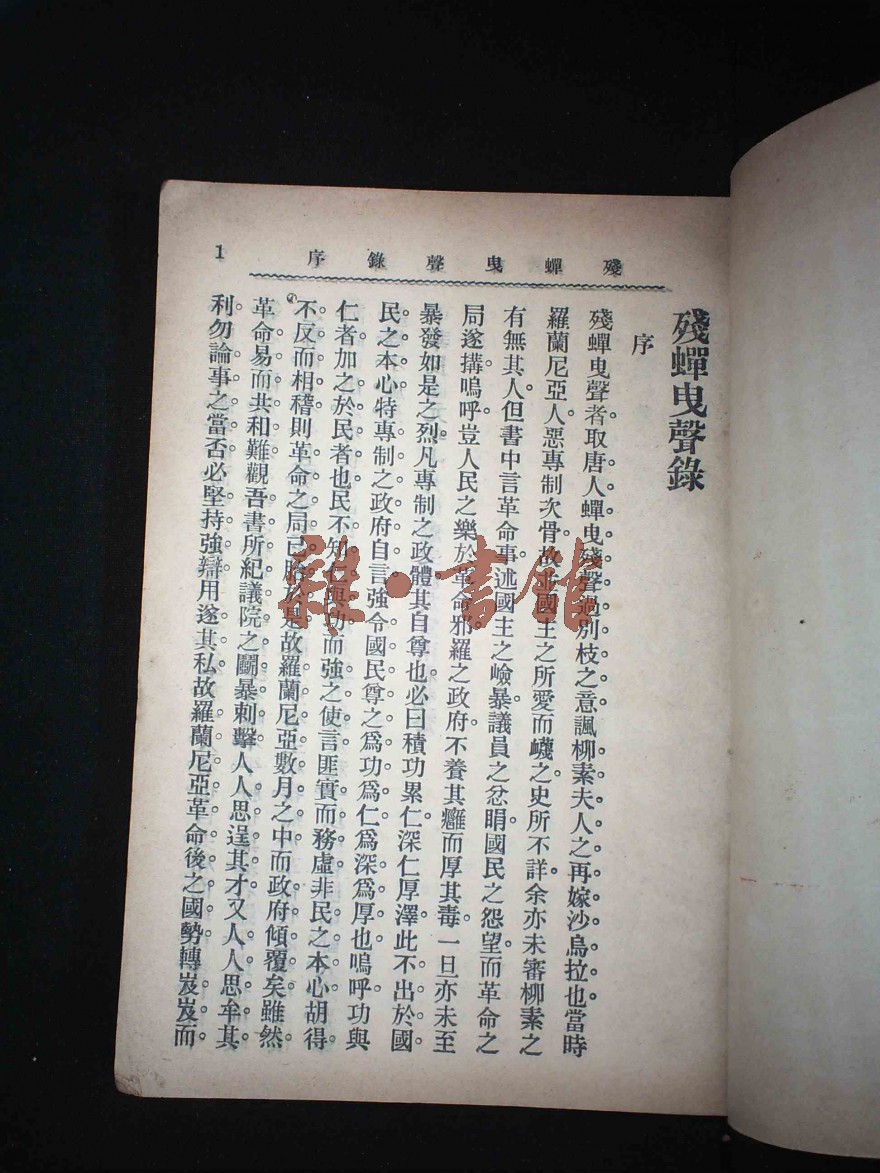 殘蟬曳聲錄序
1
殘蟬曳聲錄
序
殘蟬曳聲者取唐人蟬曳殘聲過別枝之意諷柳素夫人之再嫁沙烏拉也當時
羅蘭尼亞人惡專制次骨故並國王之所愛而衊之史所不詳余亦未審柳素之
有無其人但書中言革命事述國主之憸暴議員之忿睊國民之怨望而革命之
局遂搆嗚呼豈人民之樂於革命邪羅之政府不養其癰而厚其毒一旦亦未至
暴發如是之烈凡專制之政體其自尊也必曰積功累仁深仁厚澤此不出於國
民之本心特專制之政府自言強令國民尊之爲功爲仁爲深爲厚也嗚呼功與
仁者加之於民者也民不知仁與功而強之使言匪實而務虛非民之本心胡得
不反而相稽則革命之局已胎於是故羅蘭尼亞數月之中而政府傾覆矣雖然
革命易而共和難觀吾書所紀議院之鬭暴刺擊人人思逞其才又人人思牟其
利勿論事之當否必堅持強辯用遂其私故羅蘭尼亞革命後之國勢轉岌岌而
雜·書館